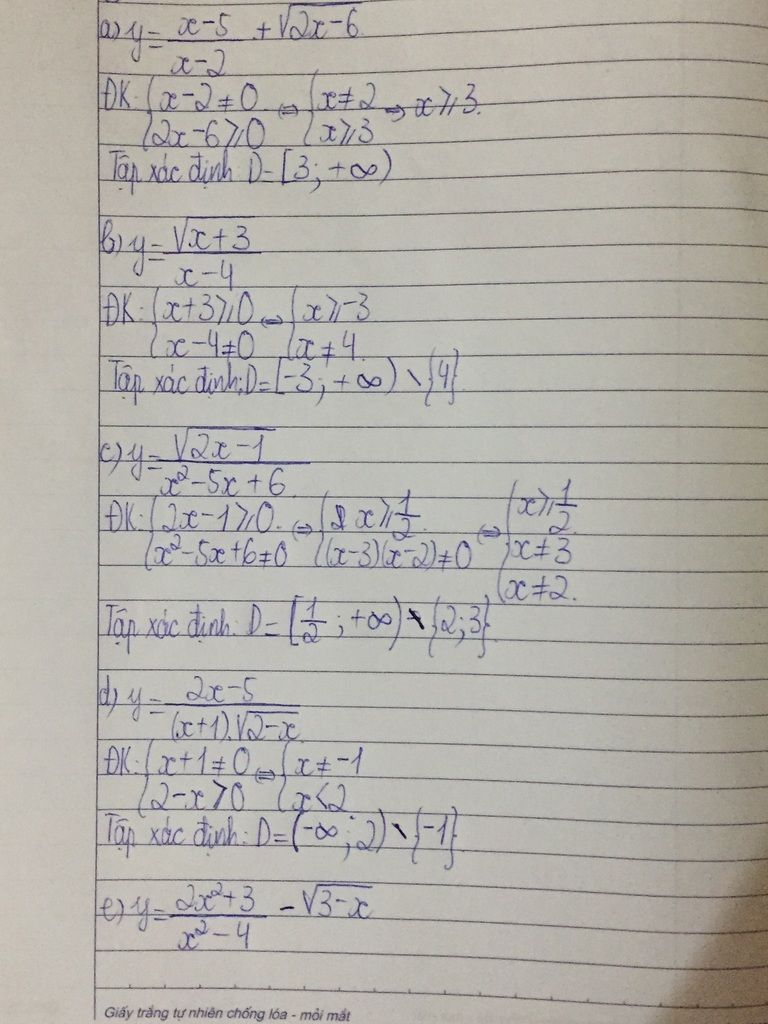 a) y = (x-5)/(x-2) + √(2x-6)
ĐK: { x-2≠0 ⇔ { x≠2 ⇔ x⩾3.
{ 2x-6⩾0 { x⩾3
Tập xác định D=[3; +∞)
b) y = √(x+3)/(x-4)
ĐK: { x+3⩾0 ⇔ { x⩾-3
{ x-4≠0 { x≠4.
Tập xác định: D=[-3; +∞) \ {4}
c) y = √(2x-1)/(x²-5x+6)
ĐK: { 2x-1⩾0. ⇔ { x⩾1/2. ⇔ { x⩾1/2
{ x²-5x+6≠0 { (x-3)(x-2)≠0 { x≠3
{ x≠2.
Tập xác định: D=[1/2; +∞) \ {2;3}
d) y = (2x-5)/((x+1).√(2-x))
ĐK: { x+1≠0 ⇔ { x≠-1
{ 2-x>0 { x<2
Tập xác định: D=(-∞; 2) \ {-1}
e) y = (2x²+3)/(x²-4) - √(3-x)
Giấy trắng tự nhiên chống lóa - mỏi mắt